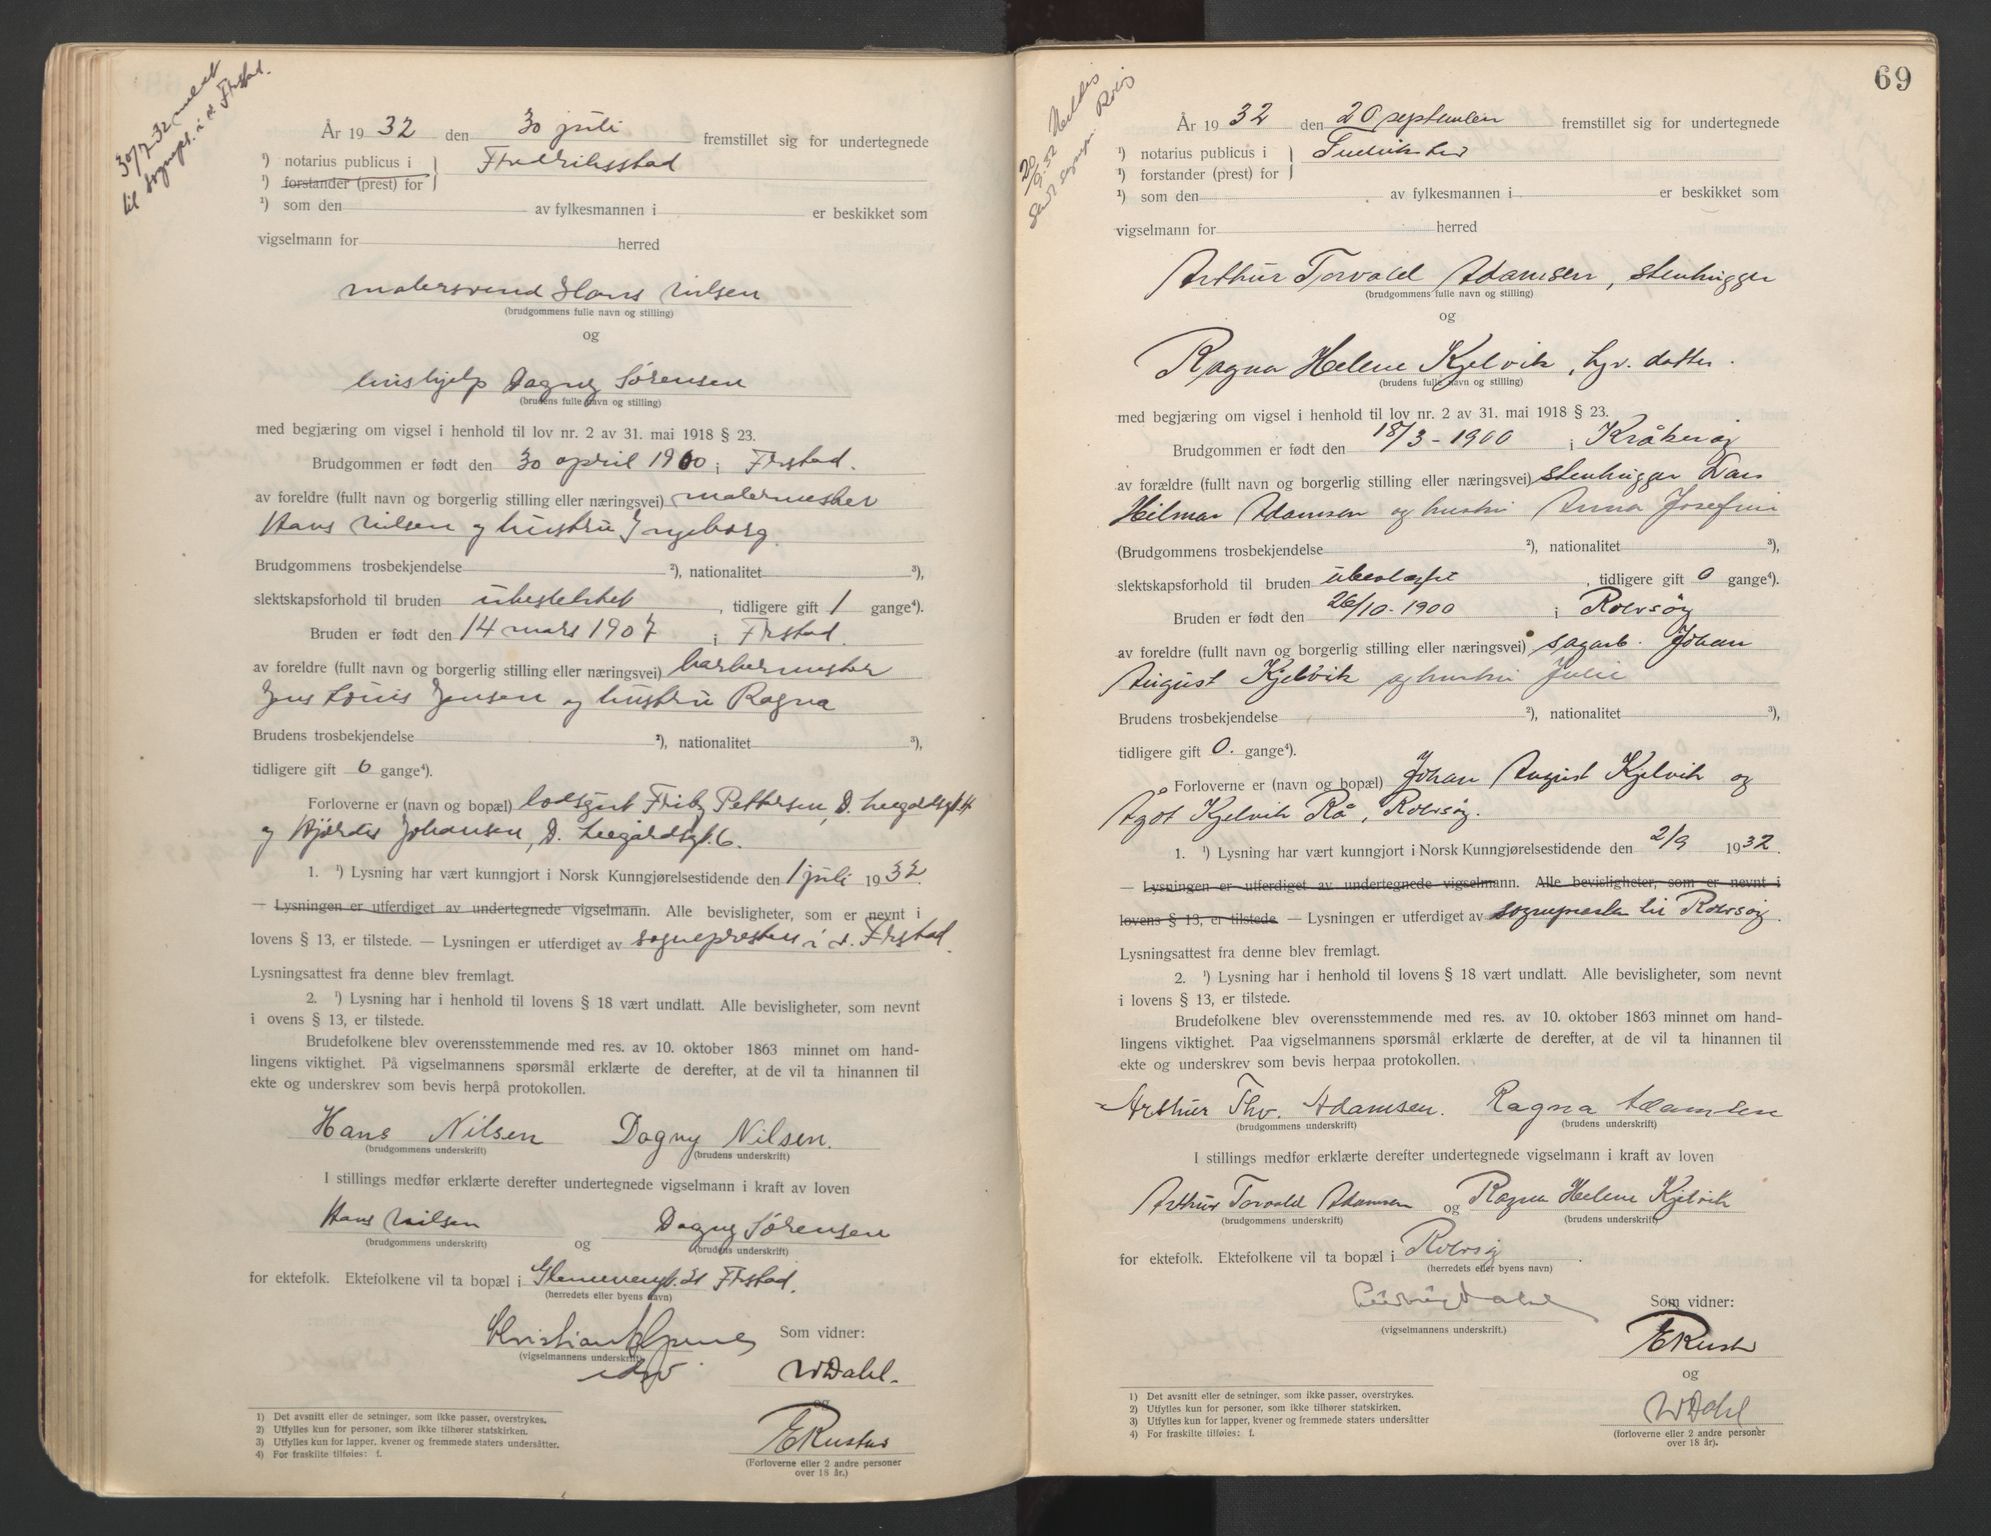 30/7-32 meldt
til sognepr. i d. Frstad.
År 1932 den 30 juli fremstillet sig for undertegnede
¹) notarius publicus i } Fredriksstad
¹) forstander (prest) for
¹) som den av fylkesmannen i er beskikket som
vigselmann for herred
malersvend Hans Nilsen
(brudgommens fulle navn og stilling)
og
hushjelp Dagny Sørensen
(brudens fulle navn og stilling)
med begjæring om vigsel i henhold til lov nr. 2 av 31. mai 1918 § 23.
Brudgommen er født den 30 april 1900 i Frstad.
av foreldre (fullt navn og borgerlig stilling eller næringsvei) malermester
Hans Nilsen og hustru Ingeborg.
Brudgommens trosbekjendelse ²), nationalitet ³),
slektskapsforhold til bruden ubeslektet, tidligere gift 1 gange⁴).
Bruden er født den 14 mars 1907 i Frstad.
av foreldre (fullt navn og borgerlig stilling eller næringsvei) barbermester
Jens Louis Jensen og hustru Ragna
Brudens trosbekjendelse ²), nationalitet ³),
tidligere gift 0 gange⁴).
Forloverne er (navn og bopæl) lodsgut Fritz Pettersen, D. Leegårdsgt.
og Hjørdis Johansen, D. Leegårdsgt. 6.
1. ¹) Lysning har vært kunngjort i Norsk Kunngjørelsestidende den 1 juli 1932.
— Lysningen er utferdiget av undertegnede vigselmann. Alle bevisligheter, som er nevnt i
lovens § 13, er tilstede. — Lysningen er utferdiget av sognepresten i d. Frstad.
Lysningsattest fra denne blev fremlagt.
2. ¹) Lysning har i henhold til lovens § 18 vært undlatt. Alle bevisligheter, som nevnt
i ovens § 13, er tilstede.
Brudefolkene blev overensstemmende med res. av 10. oktober 1863 minnet om hand-
lingens viktighet. På vigselmannens spørsmål erklærte de derefter, at de vil ta hinannen til
ekte og underskrev som bevis herpå protokollen.
Hans Nilsen Dagny Nilsen.
(brudgommens underskrift) (brudens underskrift)
I stillings medfør erklærte derefter undertegnede vigselmann i kraft av loven
Hans Nilsen og Dagny Sørensen
(brudgommens underskrift) (brudens underskrift)
for ektefolk. Ektefolkene vil ta bopæl i Glemmengt. Frstad.
(herredets eller byens navn)
Kristian
Som vidner:
(vigselmannens underskrift)
W Dahl.
og
E Kuster
(Forloverne eller 2 andre personer
over 18 år.)
1) Det avsnitt eller de setninger, som ikke passer, overstrykes.
2) Utfylles kun for personer, som ikke tilhører statskirken.
3) Utfylles kun for lapper, kvener og fremmede staters undersåtter.
4) For fraskilte tilføies: f.
69
20/9-32 Meldt
sognepr. Rolvsøy
År 1932 den 20 september fremstillet sig for undertegnede
¹) notarius publicus i } Fredrikstad
¹) forstander (prest) for
¹) som den av fylkesmannen i er beskikket som
vigselmann for herred
Arthur Torvald Adamsen, stenhugger
(brudgommens fulle navn og stilling)
og
Ragna Helene Kjelvik, hjv. datter.
(brudens fulle navn og stilling)
med begjæring om vigsel i henhold til lov nr. 2 av 31. mai 1918 § 23.
Brudgommen er født den 18/3-1900 i Kråkerøy
av forældre (fullt navn og borgerlig stilling eller næringsvei) stenhugger Lars
Hilmar Adamsen og hustru Anna Josefine
(Brudgommens trosbekjendelse ²), nationalitet ³),
slektskapsforhold til bruden ubeslegtet, tidligere gift 0 gange⁴).
Bruden er født den 26/10-1900 i Rolvsöy
av foreldre (fullt navn og borgerlig stilling eller næringsvei) sagarb. Johan
August Kjelvik og hustru Julie
Brudens trosbekjendelse ²), nationalitet ³),
tidligere gift 0. gange⁴).
Forloverne er (navn og bopæl) Johan August Kjelvik og
Ågot Kjelvik Rå, Rolvsøy.
1. ¹) Lysning har vært kunngjort i Norsk Kunngjørelsestidende den 2/9 1932.
— Lysningen er utferdiget av undertegnede vigselmann. Alle bevisligheter, som er nevnt i
lovens § 13, er tilstede — Lysningen er utferdiget av sognepresten til Rolvsøy.
Lysningsattest fra denne blev fremlagt.
2. ¹) Lysning har i henhold til lovens § 18 vært undlatt. Alle bevisligheter, som nevnt
i lovens § 13, er tilstede.
Brudefolkene blev overensstemmende med res. av 10. oktober 1863 minnet om hand-
lingens viktighet. Paa vigselmannens spørsmål erklærte de derefter, at de vil ta hinannen til
ekte og underskrev som bevis herpaa protokollen.
Arthur Thv. Adamsen. Ragna Adamsen
(brudgommens underskrift) (brudens underskrift)
I stillings medfør erklærte derefter undertegnede vigselmann i kraft av loven
Arthur Torvald Adamsen og Ragna Helene Kjelvik
(brudgommens underskrift) (brudens underskrift)
for ektefolk. Ektefolkene vil ta bopæl i Rolvsøy.
(herredets eller byens navn)
Ludvig Dahl
Som vidner:
(vigselmannens underskrift.)
E Kuster
og
W Dahl.
(forloverne eller 2 andre personer
over 18 år).
1) Det avsnitt eller de setninger, som ikke passer, overstrykes.
2) Utfylles kun for personer, som ikke tilhører statskirken.
3) Utfylles kun for lapper, kvener og fremmede staters undersåtter
4) For fraskilte tilføies: f.